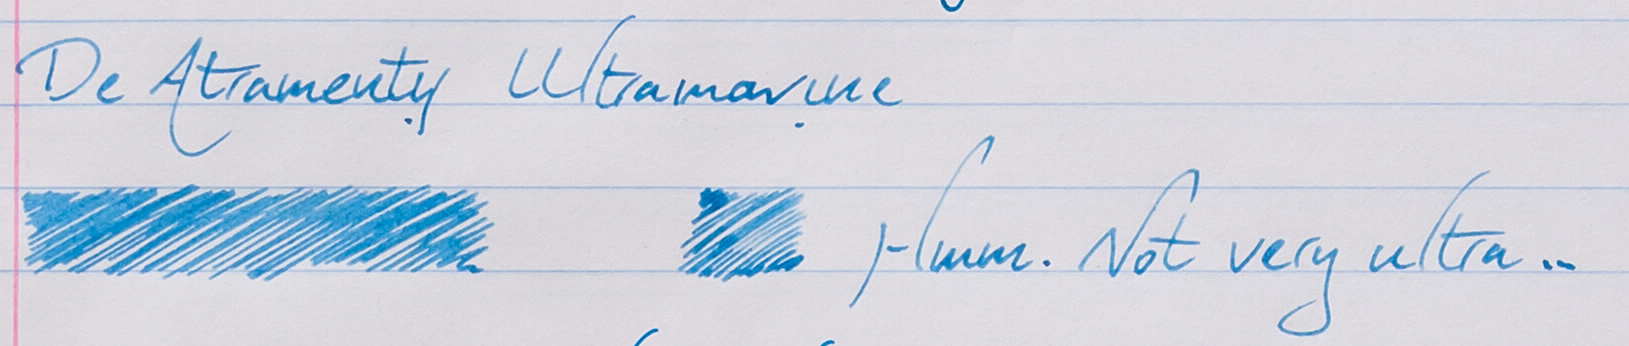 De Atramenty Ultramarine
Hmm. Not very ultra...